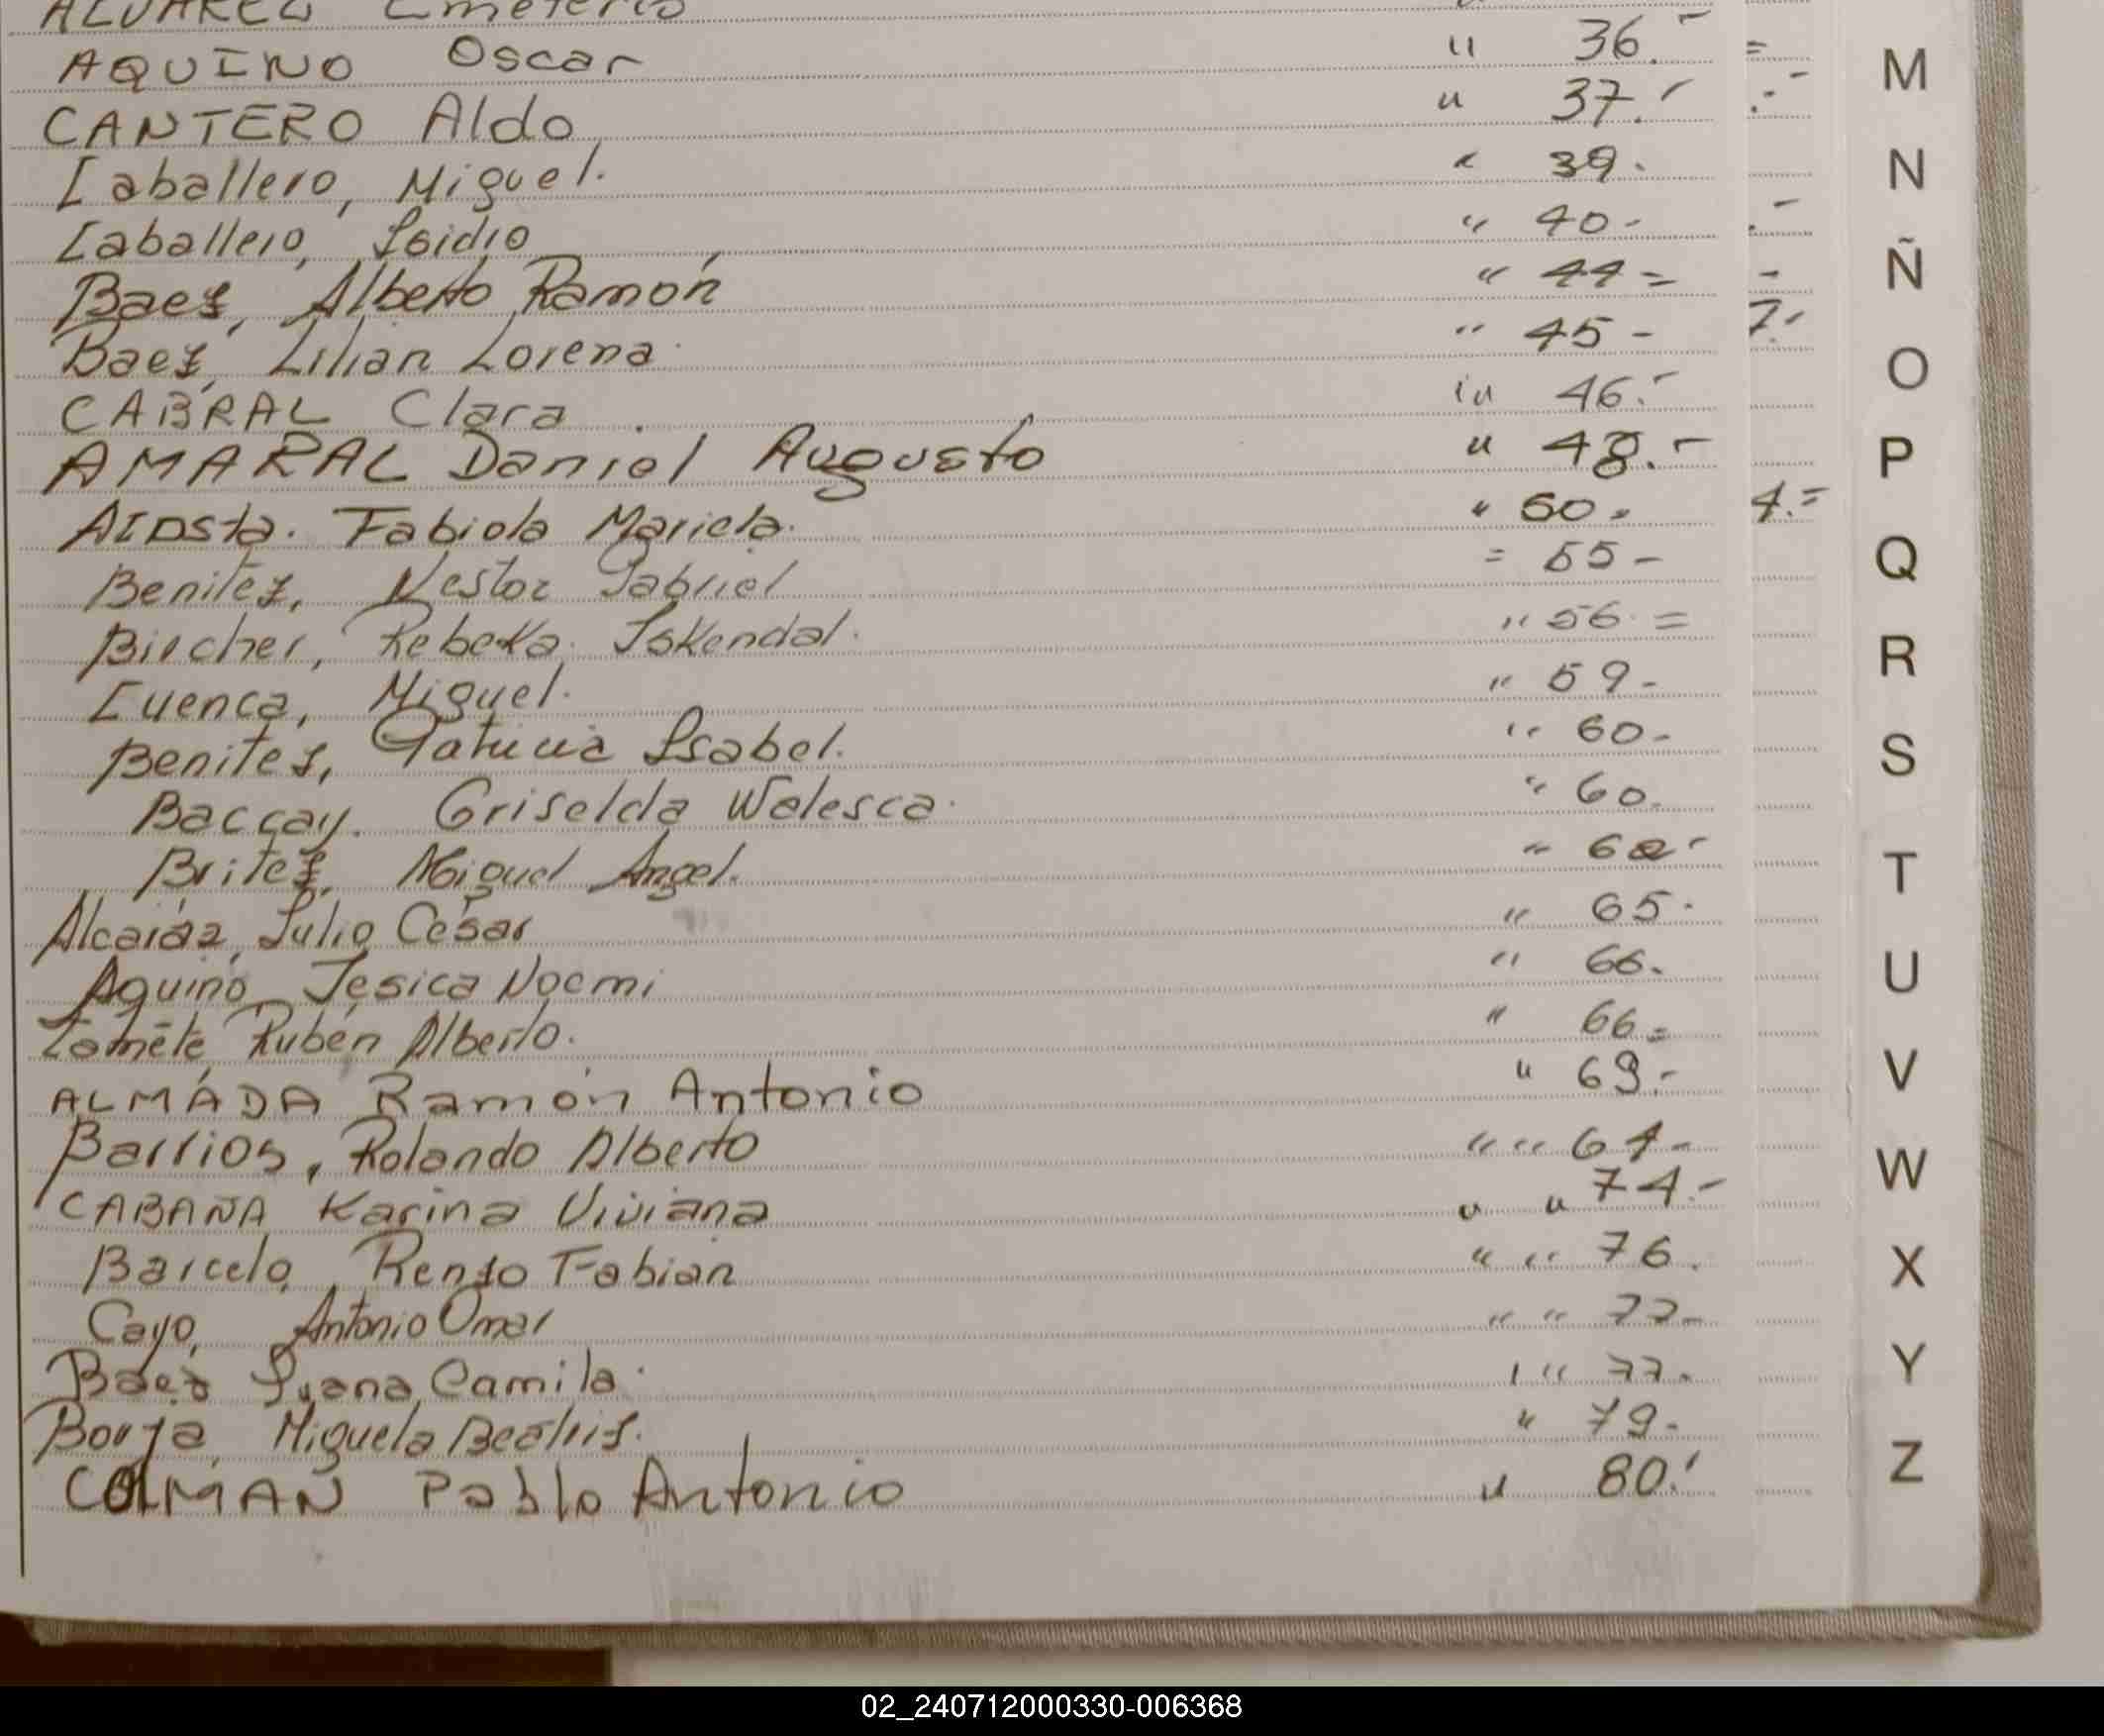 ALVAREZ Emeterio
AQUINO Oscar " 36.-
CANTERO Aldo " 37.-
Caballero, Miguel. " 39.
Caballero, Isidro " 40-
Baez, Alberto Ramón " 44=
Baez, Lilian Lorena. " 45- 7.-
CABRAL Clara. " 46.-
AMARAL Daniel Augusto " 48.-
Acosta. Fabiola Mariela. " 50= 4.=
Benitez, Nestor Gabriel = 55-
Bircher, Rebeka Iskendal. " 56.=
Cuenca, Miguel. " 59-
Benitez, Patricia Isabel. " 60-
Baccay. Griselda Walesca. " 60.
Britez, Miguel Angel. "
Alcaráz, Julio César " 65.
Aquino Jesica Noemi " 66.
Rubén Alberto. " 66=
ALMADA Ramón Antonio " 69.-
Barrios, Rolando Alberto " " 61-
CABAÑA Karina Viviana " " 74.-
Barcelo, Renzo Fabian " " 76.
Cayo, Antonio Omar " " 77-
Baez Luana Camila. " 77.
Borja Miguela Beatriz. " 79-
COLMAN Pablo Antonio " 80.-
M
N
Ñ
O
P
Q
R
S
T
U
V
W
X
Y
Z
02_240712000330-006368